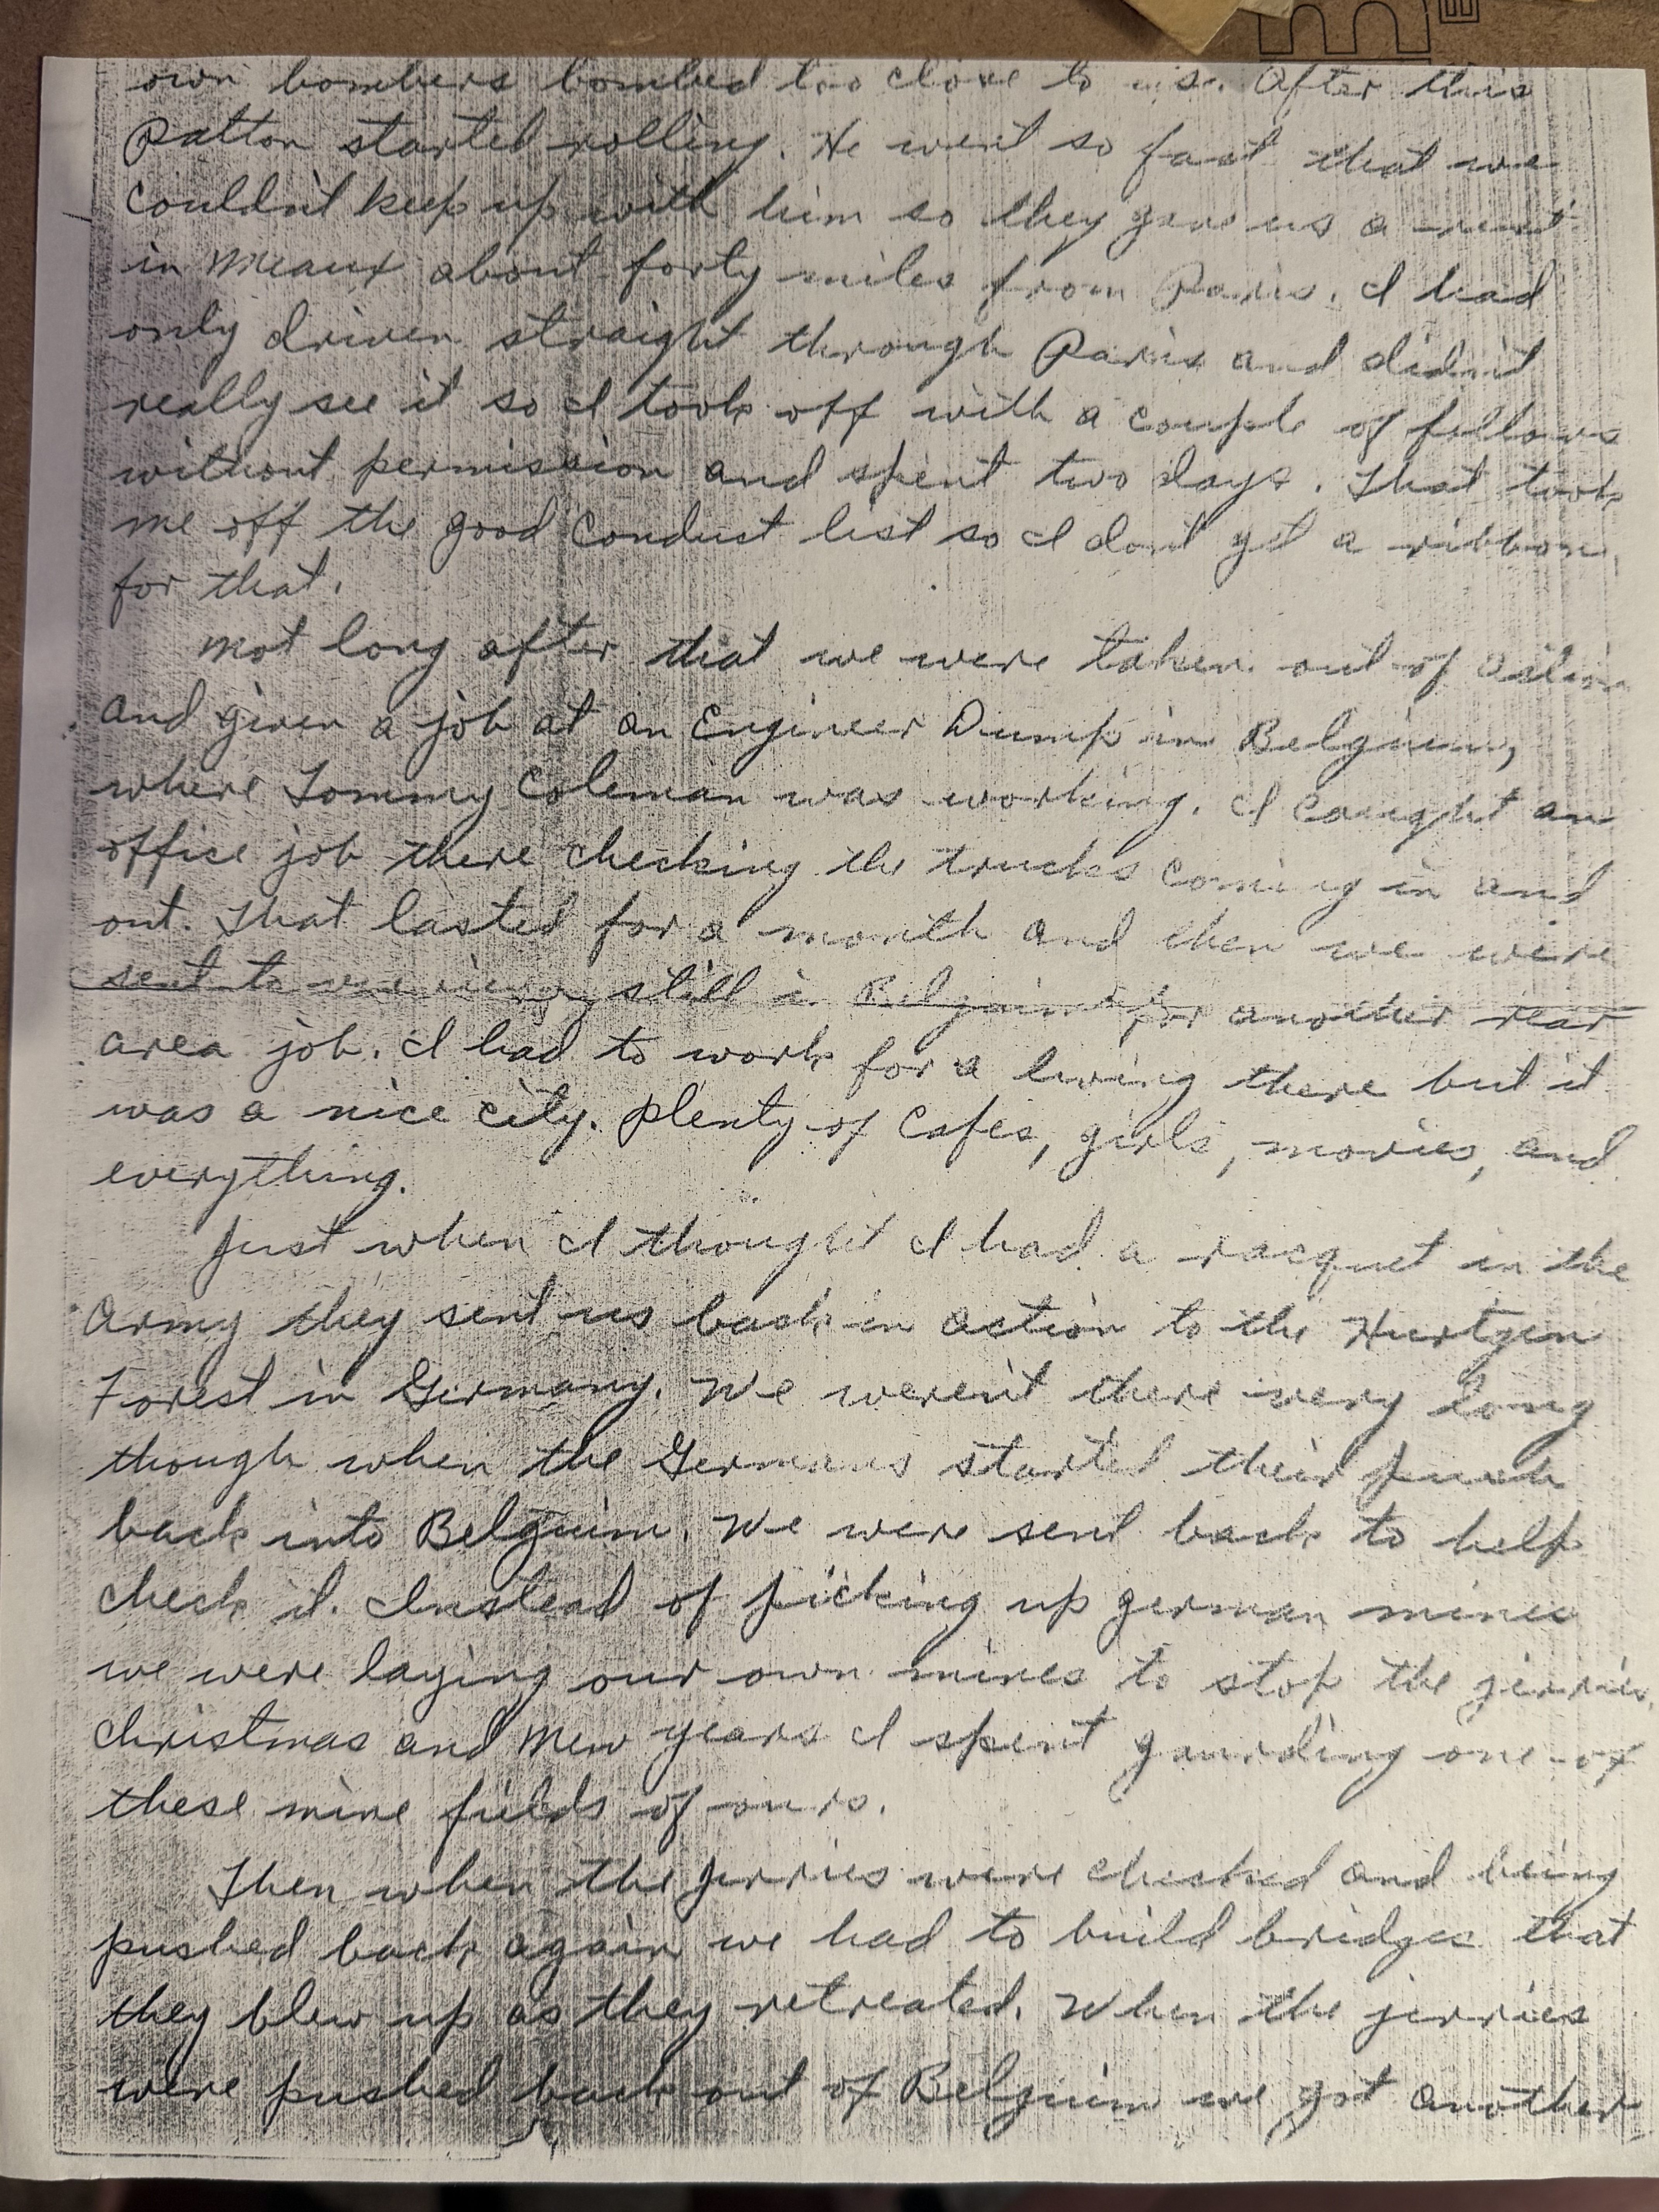 own bombers bombed too close to us. After this
Patton started rolling. He went so fast that we
couldn't keep up with him so they gave us a rest
in Meaux about forty miles from Paris. I had
only driven straight through Paris and didn't
really see it so I took off with a couple of fellows
without permission and spent two days. That took
me off the good conduct list so I don't get a ribbon
for that.
Not long after that we were taken out of action
and given a job at an Engineer Dump in Belguim,
where Tommy Coleman was working. I caught an
office job there checking the trucks coming in and
out. That lasted for a month and then we were
sent to still in Belguim for another rear
area job. I had to work for a living there but it
was a nice city. Plenty of Cafes, girls, movies, and
everything.
Just when I thought I had a racquet in the
Army they sent us back in action to the Hurtgen
Forest in Germany. We weren't there very long
though when the Germans started their push
back into Belguim. We were sent back to help
check it. Instead of picking up german mines
we were laying our own mines to stop the jerries.
Christmas and New years I spent gaurding one of
these mine fields of ours.
Then when the jerries were checked and being
pushed back again we had to build bridges that
they blew up as they retreated. When the jerries
were pushed back out of Belguim we got another